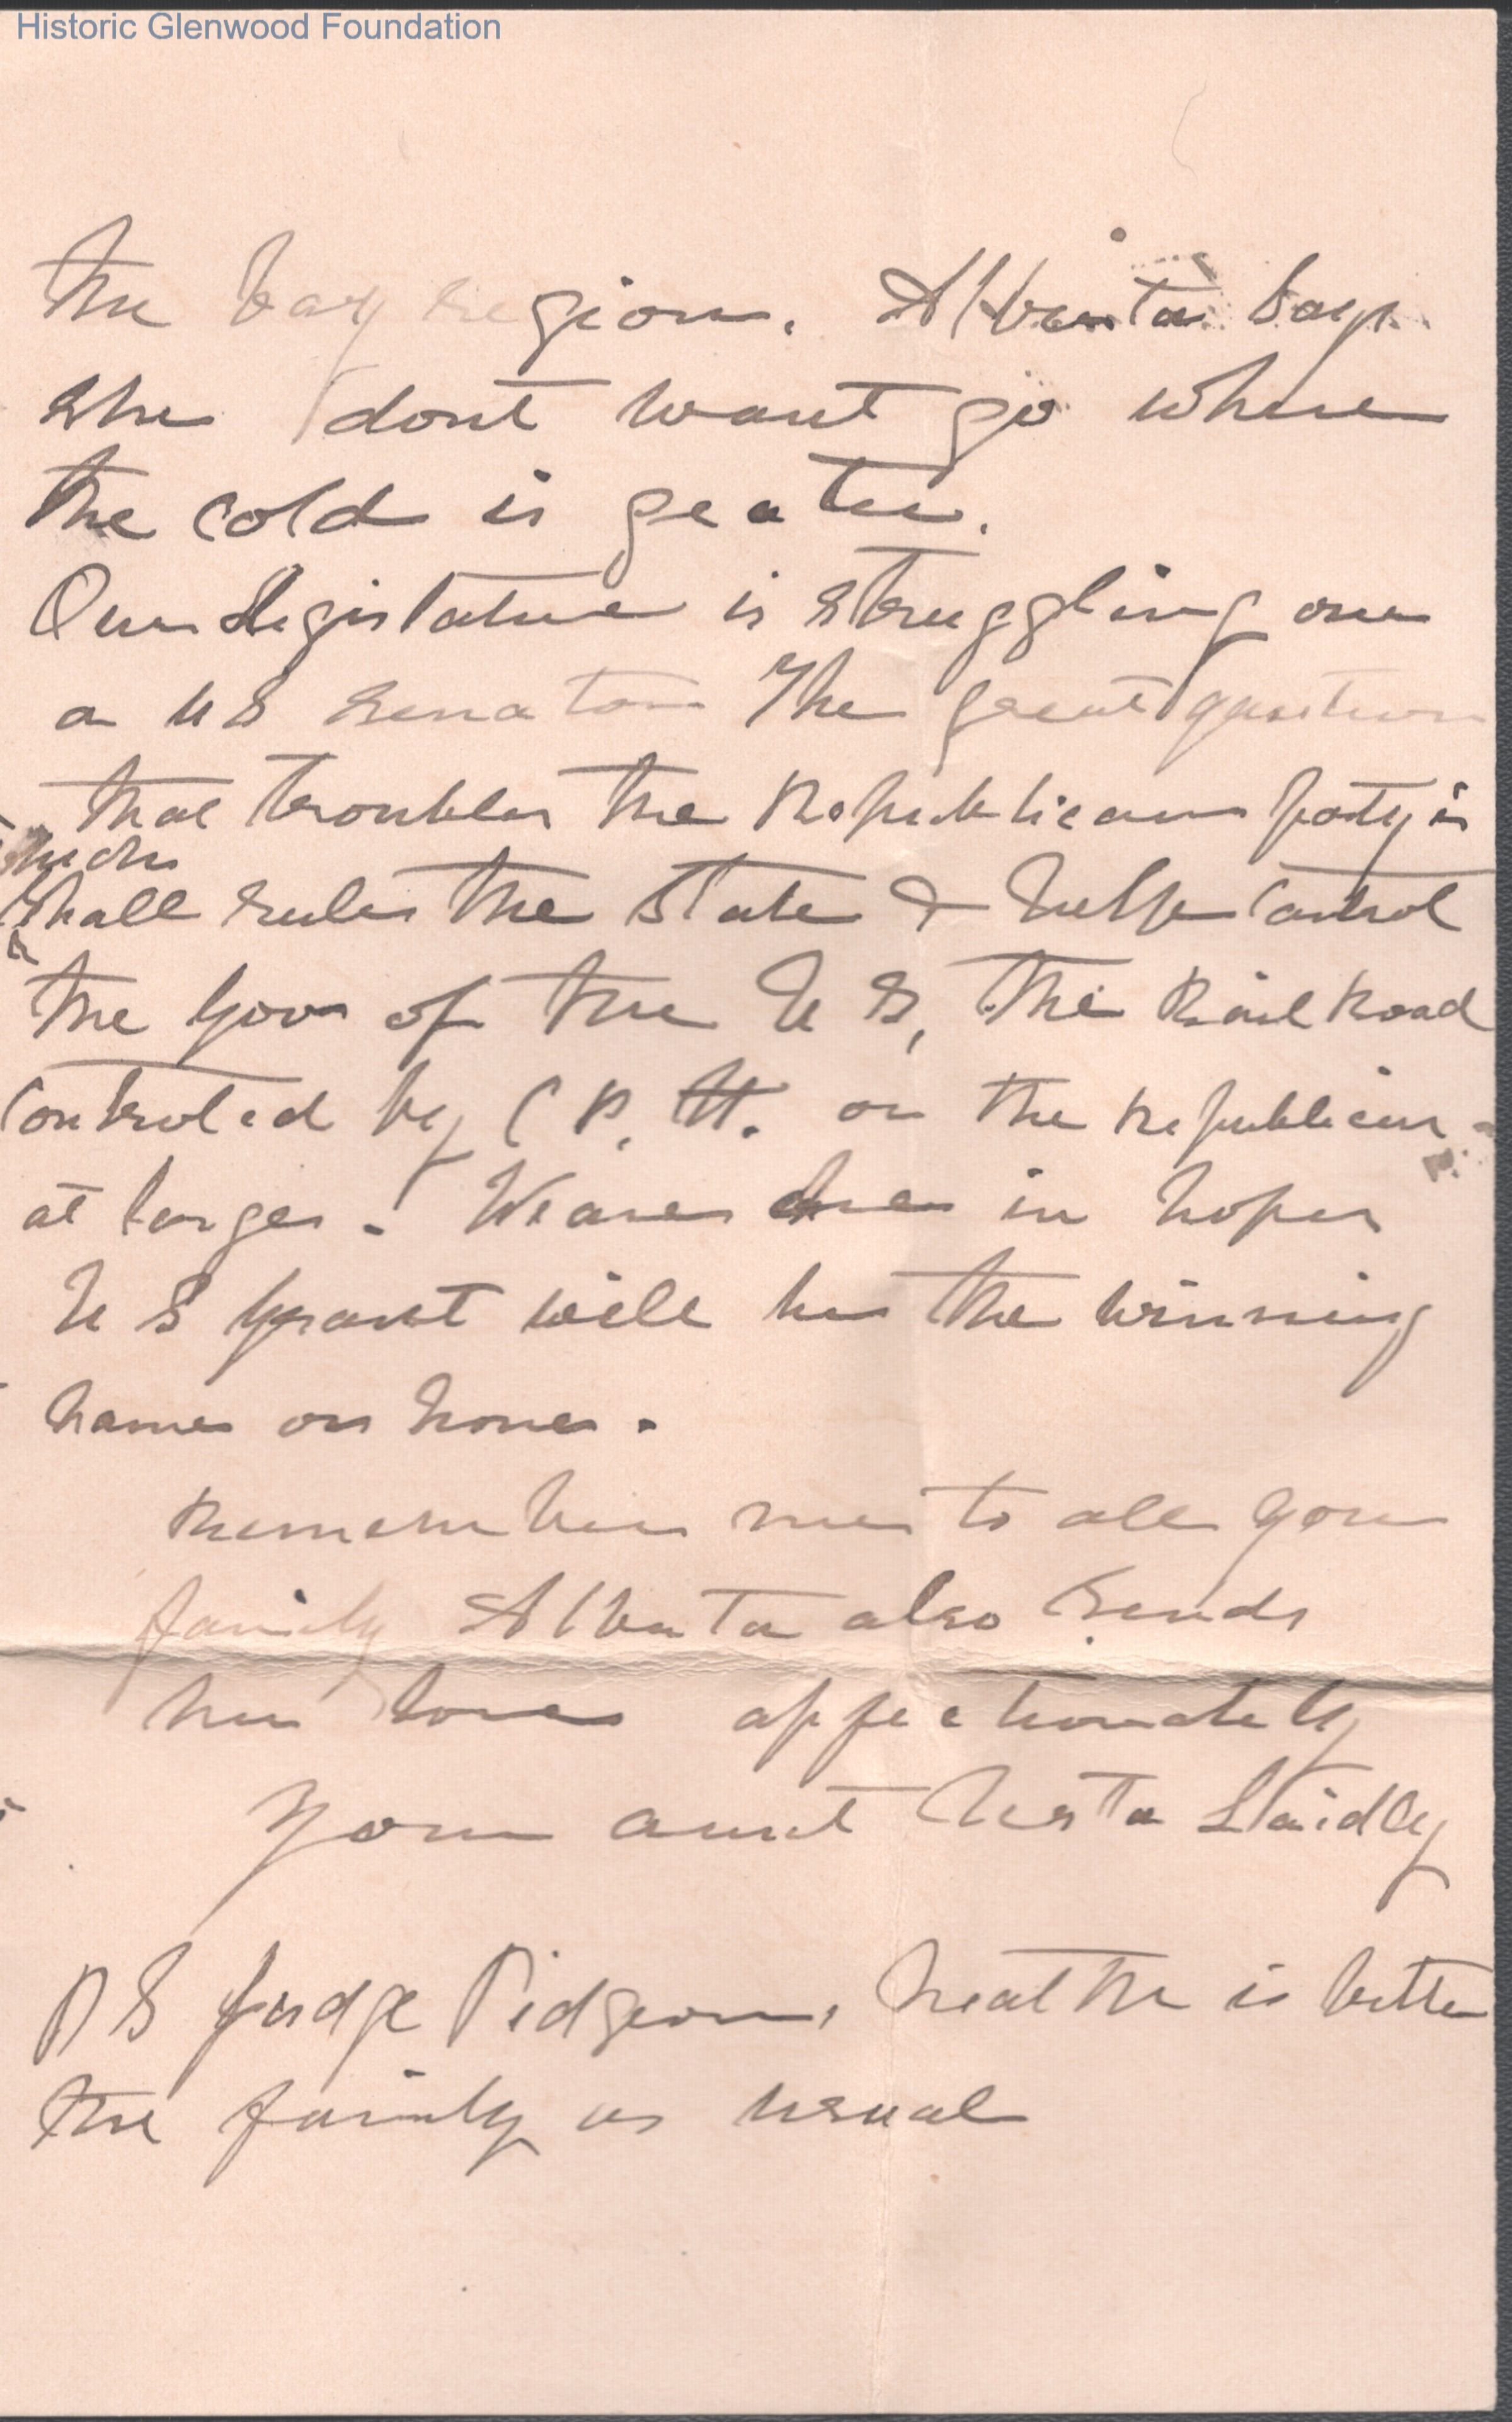 Historic Glenwood Foundation
the bay region. Alberta says
she dont want go where
the cold is geater.
Our Legislature is struggling over
a US senator The great question
that troubles the Republican party is
which
shall rule the State & help control
the Gov of the U S, The Rail Road
controled by C P. H. or the republican
at large. We are in hopes
U S Grant will be the winning
name or horse.
Remember me to all your
family Alberta also sends
her love affectionately
Your aunt Vesta Laidley
P S Judge Pidgeon, health is better
the family as usual